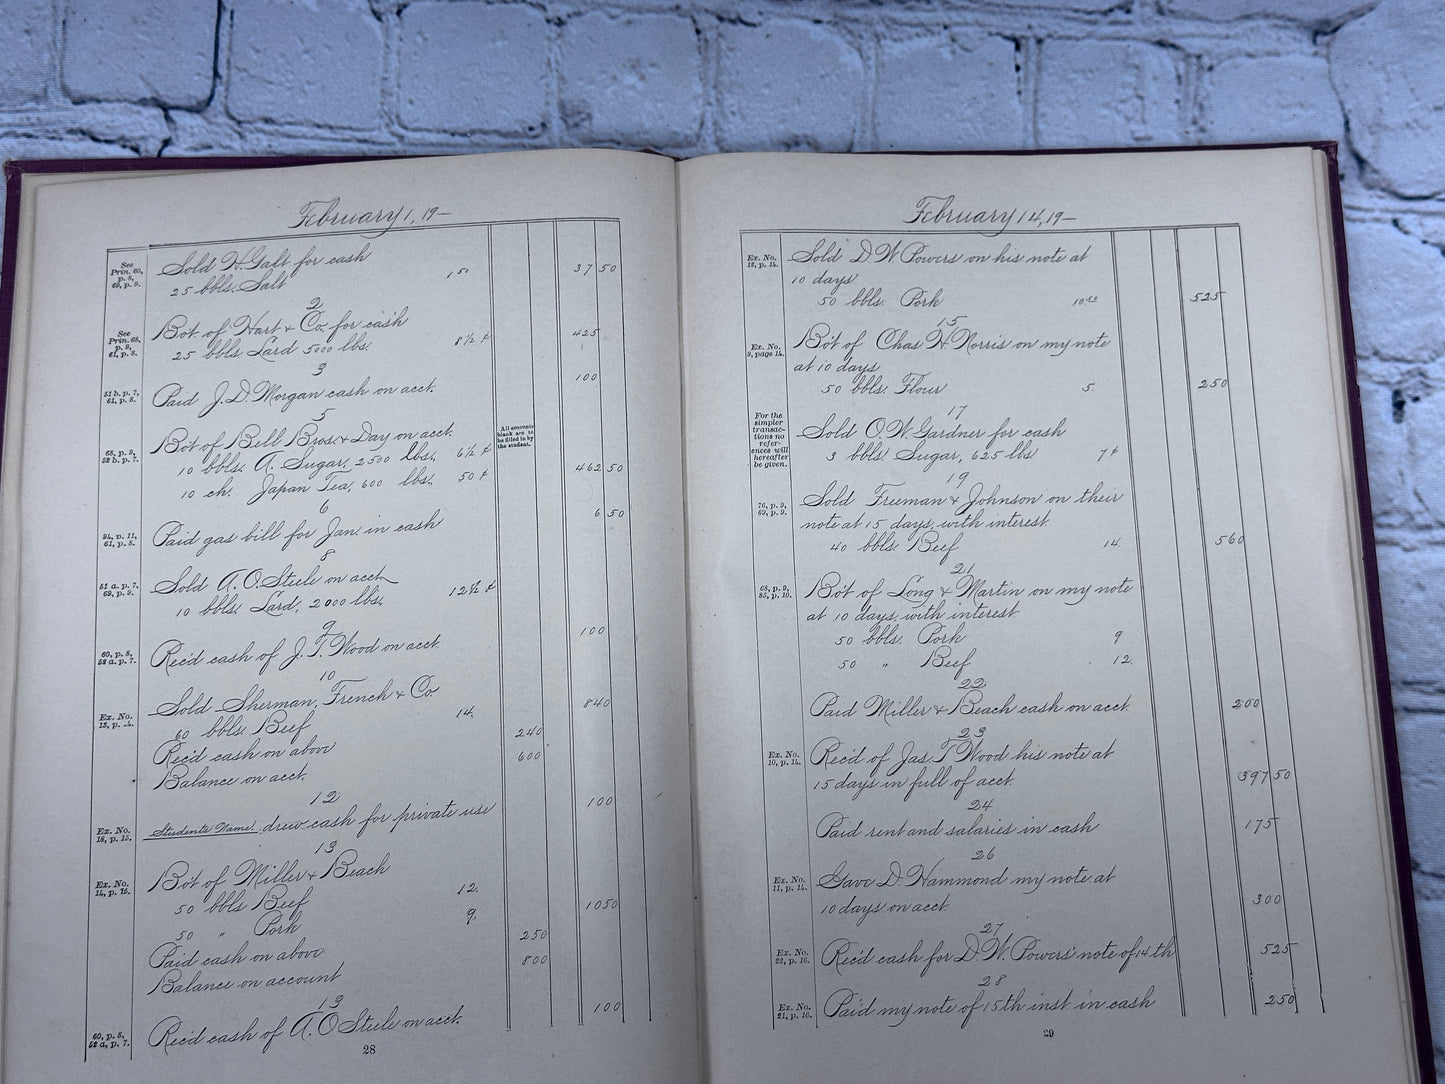 February 1, 19—
See Prin. 60, p. 8. 69, p. 9.
Sold H. Galt for cash
25 bbls. Salt 1 50 37 50
2
See Prin. 68, p. 9, 61, p. 8.
Bo't of Hart & Co., for cash
25 bbls. Lard 5000 lbs. 8 1/2 ¢ 425
3
51 b. p. 7. 61, p. 8.
Paid J. D. Morgan cash on acct. 100
5
All amounts blank are to be filled in by the student.
68, p. 9, 52 b. p. 7.
Bo't of Bell Bros. & Day on acct.
10 bbls. A. Sugar, 2500 lbs., 6 1/2 ¢
10 ch. Japan Tea, 600 lbs., 50 ¢ 462 50
6
94, p. 11, 61, p. 8.
Paid gas bill for Jan. in cash 6 50
8
51 a. p. 7. 69, p. 9.
Sold A. O. Steele on acct.
10 bbls. Lard, 2000 lbs., 12 1/2 ¢
9
60, p. 8, 52 a. p. 7.
Rec'd cash of J. T. Wood on acct. 100
10
Ex. No. 13, p. 14.
Sold Sherman, French & Co
60 bbls. Beef 14. 840
Rec'd cash on above 240
Balance on acct. 600
12
Ex. No. 18, p. 15.
Students Name drew cash for private use 100
13
Ex. No. 14, p. 15.
Bo't of Miller & Beach
50 bbls. Beef 12.
50 " Pork 9. 1050
Paid cash on above 250
Balance on account 800
13
60, p. 8, 52 a, p. 7.
Rec'd cash of A. O Steele on acct. 100
28
February 14, 19—
Ex. No. 12, p. 14.
Sold D. W. Powers on his note at
10 days
50 bbls. Pork 525
15
Ex. No. 9, page 14.
Bo't of Chas. H. Norris on my note
at 10 days
50 bbls. Flour 5. 250
17
For the simpler transactions no references will hereafter be given.
Sold O. W. Gardner for cash
3 bbls. Sugar, 625 lbs 7 ¢
19
76, p. 9, 69, p. 9.
Sold Freeman & Johnson on their
note at 15 days, with interest
40 bbls. Beef 14. 560
21
68, p. 9, 85, p. 10.
Bo't of Long & Martin on my note
at 10 days, with interest
50 bbls. Pork 9
50 " Beef 12.
22
Paid Miller & Beach cash on acct. 200
23
Ex. No. 10, p. 14.
Rec'd of Jas. T. Wood his note at
15 days in full of acct. 397 50
24
Paid rent and salaries in cash 175
26
Ex. No. 11, p. 14.
Gave D. Hammond my note at
10 days on acct. 300
27
Ex. No. 22, p. 16.
Rec'd cash for D. W. Powers' note of 14th 525
28
Ex. No. 21, p. 16.
Paid my note of 15th inst. in cash 250
29